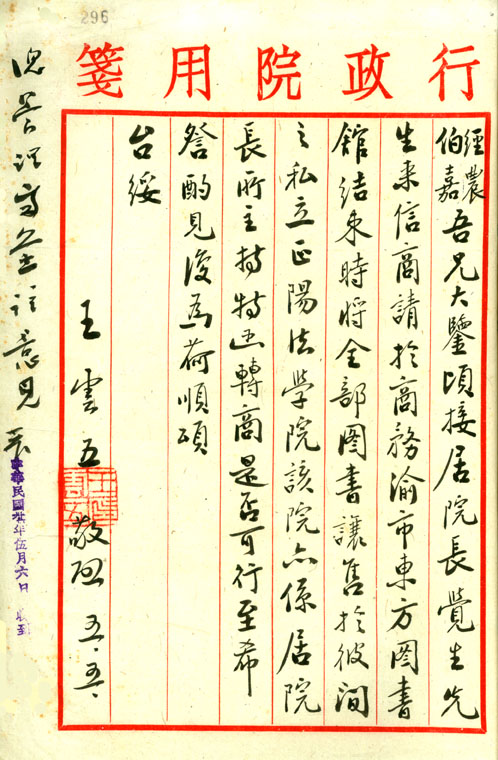 296
行政院用箋
經農
伯嘉
吾兄大鑒頃接居院長覺生先
生來信商請於商務渝市東方圖書
館結束時將全部圖書讓售於彼間
之私立正陽法學院該院亦係居院
長所主持特函轉商是否可行至希
詧酌見復為荷順頌
台綏
王雲五敬啟 五.五.
意見
中華民國 年伍月六日 收到